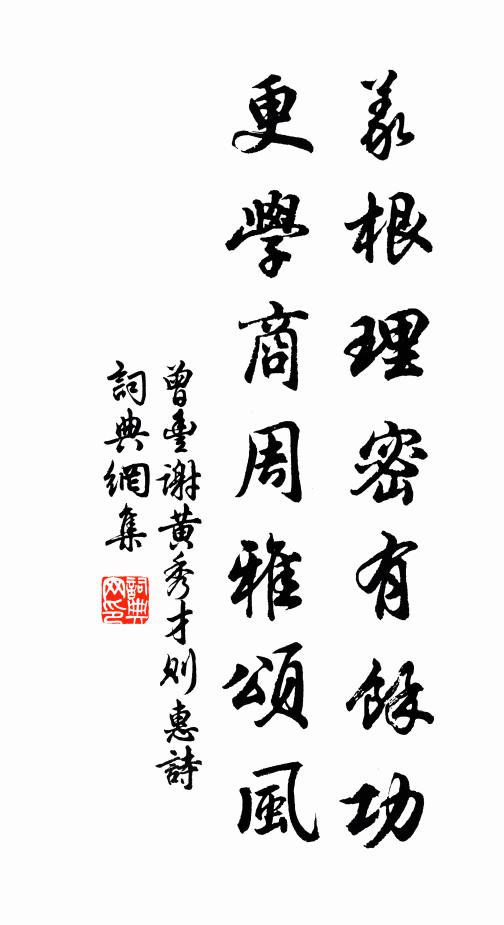 義根理密有餘功
更學商周雅頌風
曾豐謝黃秀才則惠詩
詞典網集
詞典網印